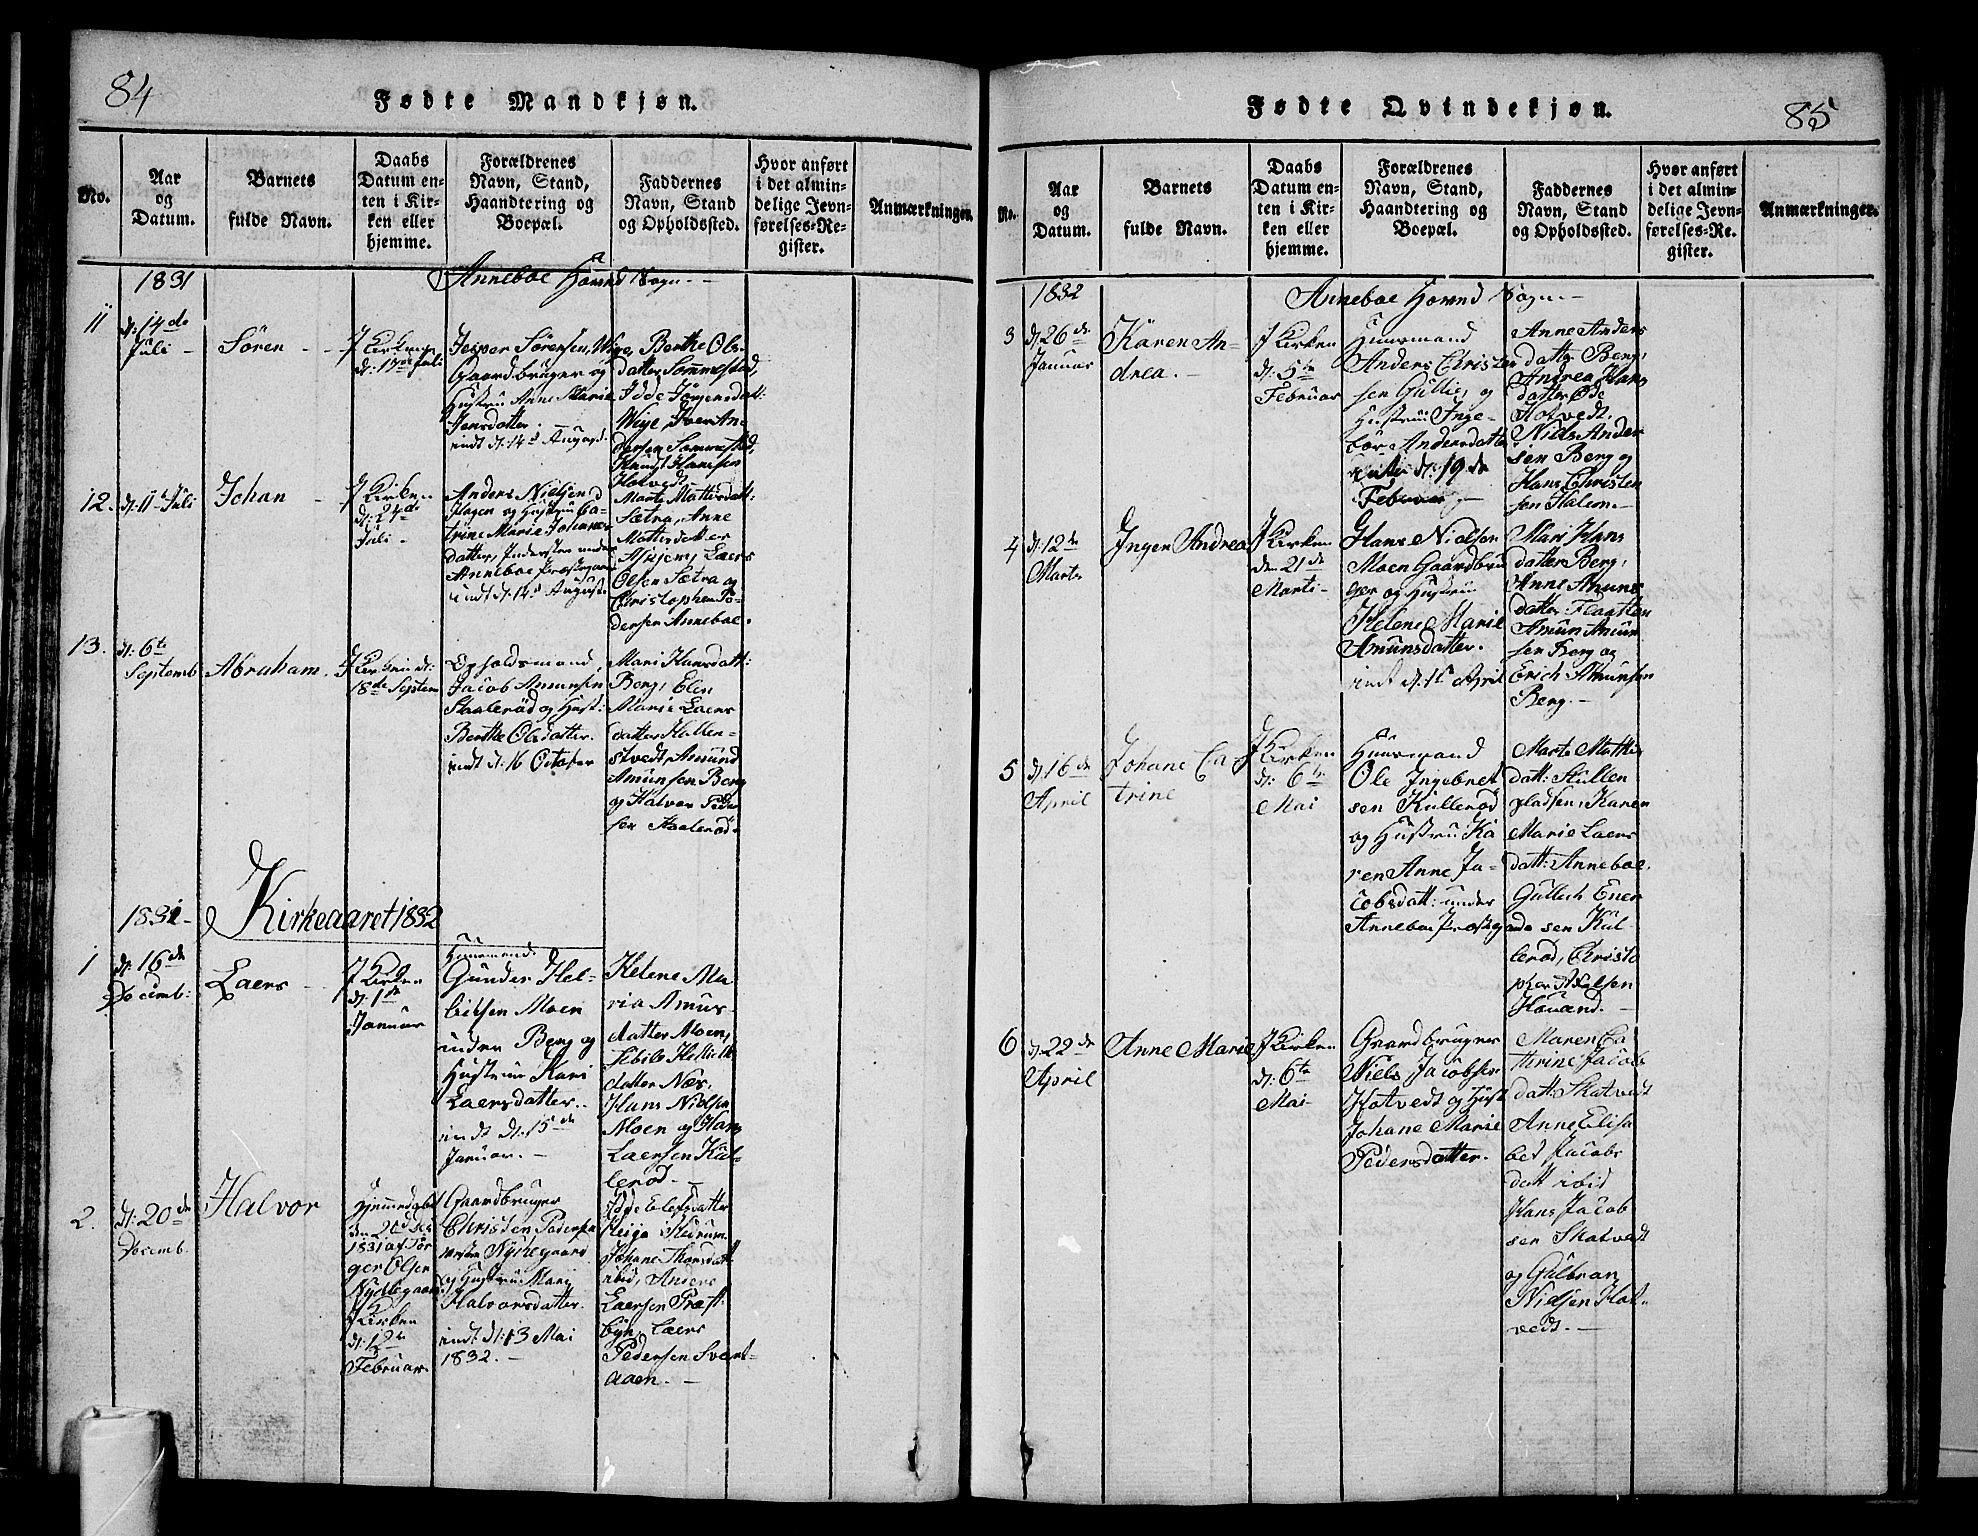 84
Fødte Mandkjøn.
No.
Aar
og
Datum.
Barnets
fulde Navn.
Daabs
Datum en-
ten i Kir-
ken eller
hjemme.
Forældrenes
Navn, Stand,
Haandtering og
Boepæl.
Faddernes
Navn, Stand
og Opholdssted.
Hvor anført
i det almin-
delige Jevn-
førelses-Re-
gister.
Anmærkninger.
1831
Anneboe Hovnd Sogn.
11
d: 14de
Juli
Sören
J Kirken
Juli
Jesper Sörensen, Wiye,
Gaardbruger og
Hustru Anne Marie
Jensdatter.
indt d: 14d August.
Berthe Ols-
datter Sommestad,
Idde Jörgensdatt:
Wiye, Iver An-
dersen Sommestad,
Knudt Hansen
Hotvedt.
12.
d: 11te Juli
Johan
J Kirken
d: 24de
Juli
Anders Nielsen
Hagen og Hustru Ca-
trine Marie Johannes
datter, under
Anneboe Præstegaard
indt d: 14d August
Marte Mattisdatt:
Sætra, Anne
Mattisdatter
Laers
Olsen Sætra og
Christopher Pe-
dersen Anneboe.
13.
d: 6te
Septemb
Abraham.
J Kirken d:
18de Septem
Opholdsmand
Jacob Amunsen
Aalerød og Hust:
Berthe Olsdatter.
indt d: 16 October
Mari Hansdatt:
Berg, Elen
Marie Laers
datter Hallen-
stvedt, Amund
Amunsen Berg
og Halvor Peder
sen Aalerød.
1831
Kirkeaaret 1832
1
d: 16de
Decemb:
Laers
J Kirken
d: 1te
Januar
Huusmand
Gunder Hel-
liksen Moen
under Berg og
Hustrue Kari
Laersdatter.
indt d: 15de
Januar.
Helene Ma
ria Amus-
datter Moen,
Sibile Hellik
datter Nær,
Hans Nielsen
Moen og Hans
Laersen Kul-
lerød.
2.
d: 20de
Decemb.
Halvor
Hjemmedøbt
1831 af Jör
gen Olsen
Nykkegaard
J Kirken
d: 12te
Februar.
Gaardbruger
Christen Pedersen
Nykkegaard
og Hustru Mari
Halvorsdatter.
indt d: 13 Mai
1832.
Idde Elefsdatter
i Hedrum
Johane Thorsdatt
ibid, Anders
Laersen Præst-
byn, Laers
Pedersen Svart-
aaen.
Fødte Qvindekjøn.
85
No.
Aar
og
Datum.
Barnets
fulde Navn.
Daabs
Datum en-
ten i Kir-
ken eller
hjemme.
Forældrenes
Navn, Stand,
Haandtering og
Boepæl.
Faddernes
Navn, Stand
og Opholdssted.
Hvor anført
i det almin-
delige Jevn-
førelses-Re-
gister.
Anmærkninger.
1832
Anneboe Hovnd Sogn.
3
d: 26de
Januar
Karen An-
drea.
J Kirken
d: 5te
Februar
Huusmand
Anders Christen
sen Gullie, og
Hustrue Inge-
bör Andersdatter
d: 19de
Februar
Anne Anders
datter Berg,
Andrea Hans
datter Øde
Hotvedt,
Niels Ander
sen Berg og
Hans Christen
sen Halum.
4
d: 12te
Marts
Inger Andrea
J Kirken
den 21de
Marti
Hans Nielsen
Moen Gaardbru
ger og Hustrue
Helene Marie
Amunsdatter.
indt d: 1te April
Mari Hans
datter Berg,
Anne Amuns
datter Flaatten
Amun Amun
sen Berg og
Erich Amunsen
Berg.
5
d: 16de
April
Johane Ca
trine
J Kirken
d: 6te
Mai
Huusmand
Ole Ingebret
sen Kullerød
og Hustrue Ka
ren Anne Ja-
cobsdatt: under
Anneboe Præsteg
Marte Mathis
datt: Kullen
pladsen, Karen
Marie Laers
datt: Anneboe.
Gullich Ener
sen Kul
lerød, Christo
pher Axelsen
Houand.
6
d: 22de
April
Anne Marie
J Kirken
d: 6te
Mai
Gaardbruger
Niels Jacobsen
Hotvedt og Hust
Johane Marie
Pedersdatter.
Maren Ca
thrine Jacobs
datt: Skatvedt
Anne Elisa
bet Jacobs
datt ibid
Hans Jacob
sen Skatvedt
og Gulbran
Nielsen Hot-
vedt.